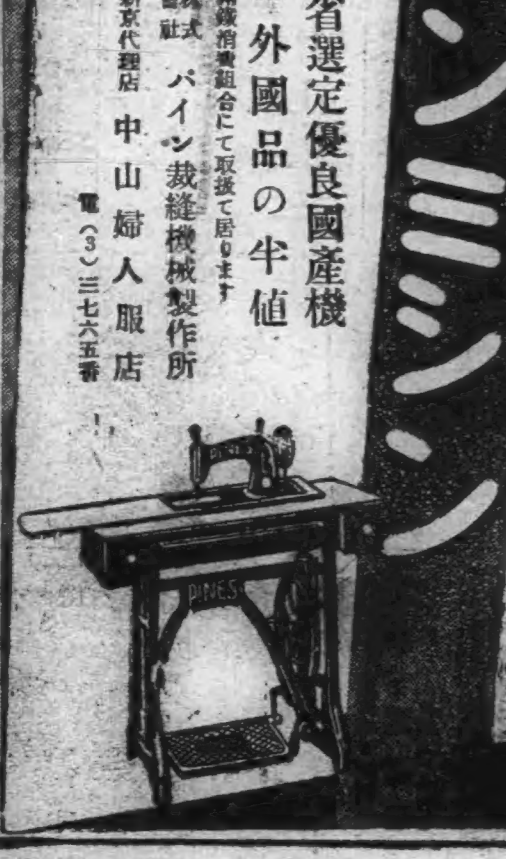 ンミシン
省選定優良國產機
外國品の半値
滿鐵消費組合にて取扱て居ります
株式
會社
パイン裁縫機械製作所
新京代理店
中山婦人服店
電(3)三七六五番
PINES
PINES